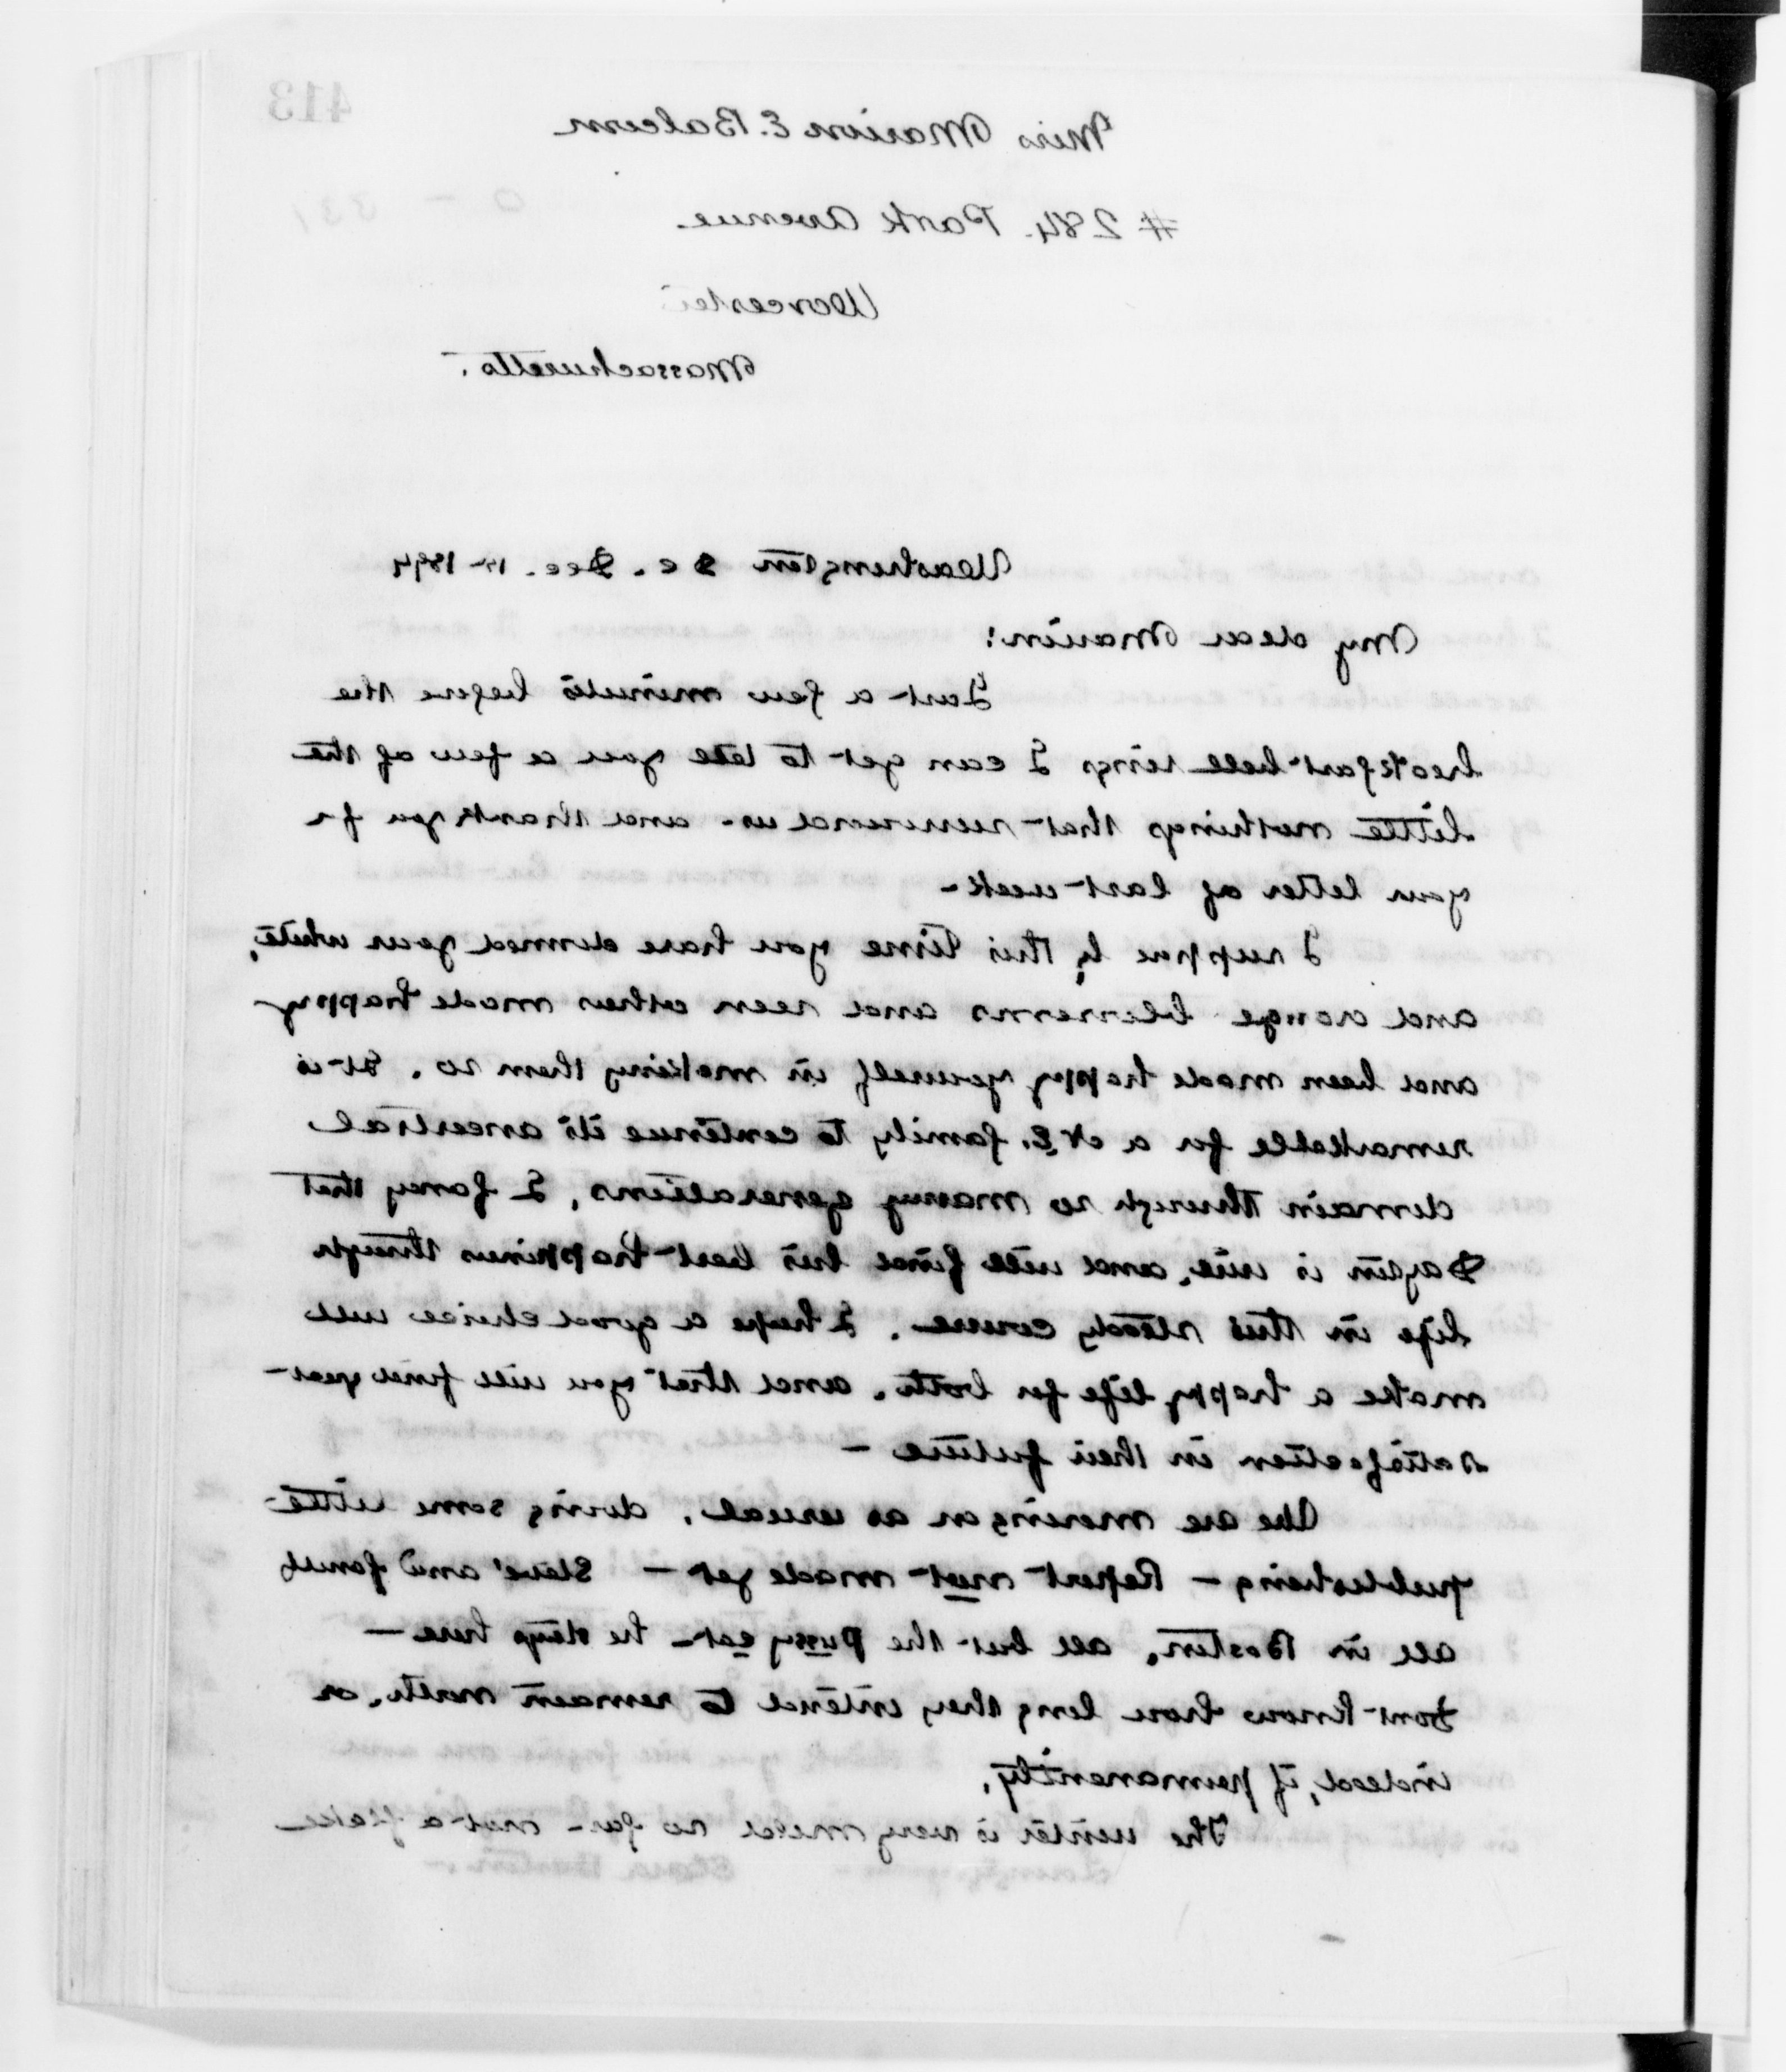 413
Miss Marion E. Balcum
# 284. Park Avenue.
Worcester
Massachusetts.
Washington D C. Dec. 1894
My dear Marion:
Just a few minutes before the
breakfast bell rings I can get to tell you a few of the
little nothings that surround us - and thank you fr
your letter of last week -
I suppose by this time you have donned your white,
and orange blossoms and seen others made happy
and been made happy yourself in making them so. It is
remarkable for a N.E. family to continue its ancestral
domain through so many generations, I fancy that
is wise, and will find his best happiness through
life in this steady course. I hope a good choice will
make a happy life for both, and that you will find great
satisfaction in their future -
We are moving on as usual, doing some little
publishing - Report not made yet - Steve and family
all in Boston, all but the Pussy cat - he stays here -
Dont know how long they intend to remain north, or
indeed, if permanently,
The winter is very mild so far - not a flake
Clara Barton -